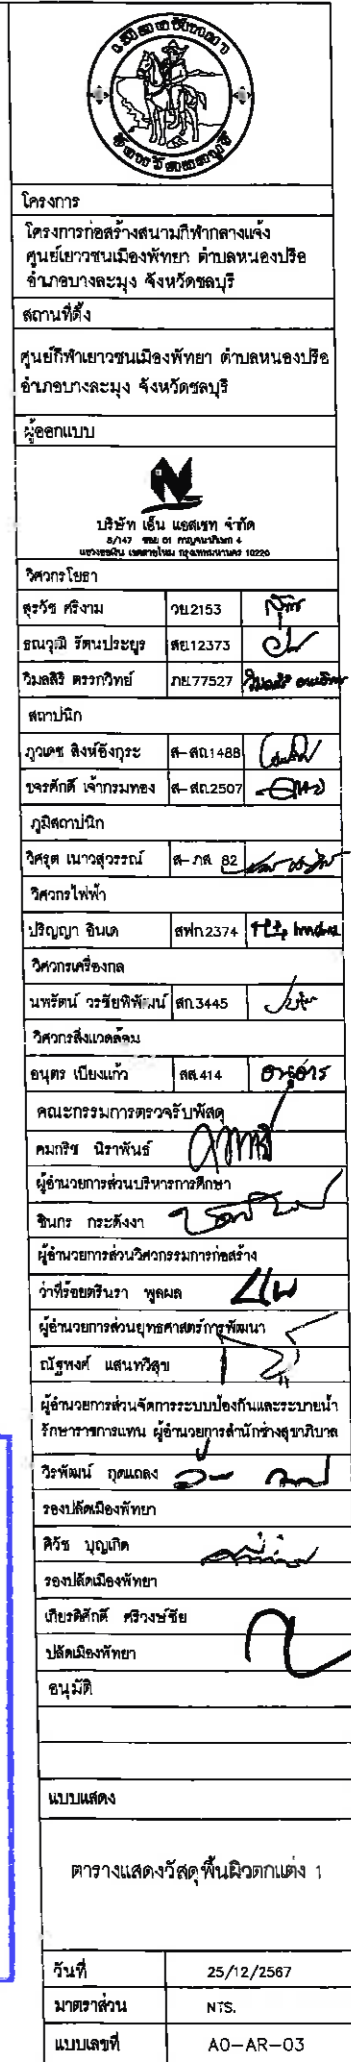 โครงการ
โครงการก่อสร้างสนามกีฬากลางแจ้ง
ศูนย์เยาวชนเมืองพัทยา ตำบลหนองปรือ
อำเภอบางละมุง จังหวัดชลบุรี
สถานที่ตั้ง
ศูนย์กีฬาเยาวชนเมืองพัทยา ตำบลหนองปรือ
อำเภอบางละมุง จังหวัดชลบุรี
ผู้ออกแบบ
บริษัท เอ็น แอสเซท จำกัด
8/147 ซอย 01 กาญจนาภิเษก 4
แขวงออเงิน เขตสายไหม กรุงเทพมหานคร 10220
วิศวกรโยธา
สุรวัช ศรีงาม วย.2153
ธณวุฒิ รัตนประยูร สย.12373
วิมลสิริ ตรรกวิทย์ ภย.77527
สถาปนิก
ภูวเดช สิงห์อังกุระ ส-สถ.1488
ขจรศักดิ์ เจ้ากรมทอง ส-สถ.2507
ภูมิสถาปนิก
วิศรุต เนาวสุวรรณ์ ส-ภส. 82
วิศวกรไฟฟ้า
ปริญญา อินเด สฟก.2374
วิศวกรเครื่องกล
นพรัตน์ วรชัยพิพัฒน์ สก.3445
วิศวกรสิ่งแวดล้อม
อนุตร เบียงแก้ว สส.414
คณะกรรมการตรวจรับพัสดุ
คมกริช นิราพันธ์
ผู้อำนวยการส่วนบริหารการศึกษา
ชินกร กระดังงา
ผู้อำนวยการส่วนวิศวกรรมการก่อสร้าง
ว่าที่ร้อยตรีนรา พูลผล
ผู้อำนวยการส่วนยุทธศาสตร์การพัฒนา
ณัฐพงศ์ แสนทวีสุข
ผู้อำนวยการส่วนจัดการระบบป้องกันและระบายน้ำ
รักษาราชการแทน ผู้อำนวยการสำนักช่างสุขาภิบาล
วิรพัฒน์ กุดแถลง
รองปลัดเมืองพัทยา
ศิวัช บุญเกิด
รองปลัดเมืองพัทยา
เกียรติศักดิ์ ศรีวงษ์ชัย
ปลัดเมืองพัทยา
อนุมัติ
แบบแสดง
ตารางแสดงวัสดุพื้นผิวตกแต่ง 1
วันที่ 25/12/2567
มาตราส่วน NTS.
แบบเลขที่ A0-AR-03